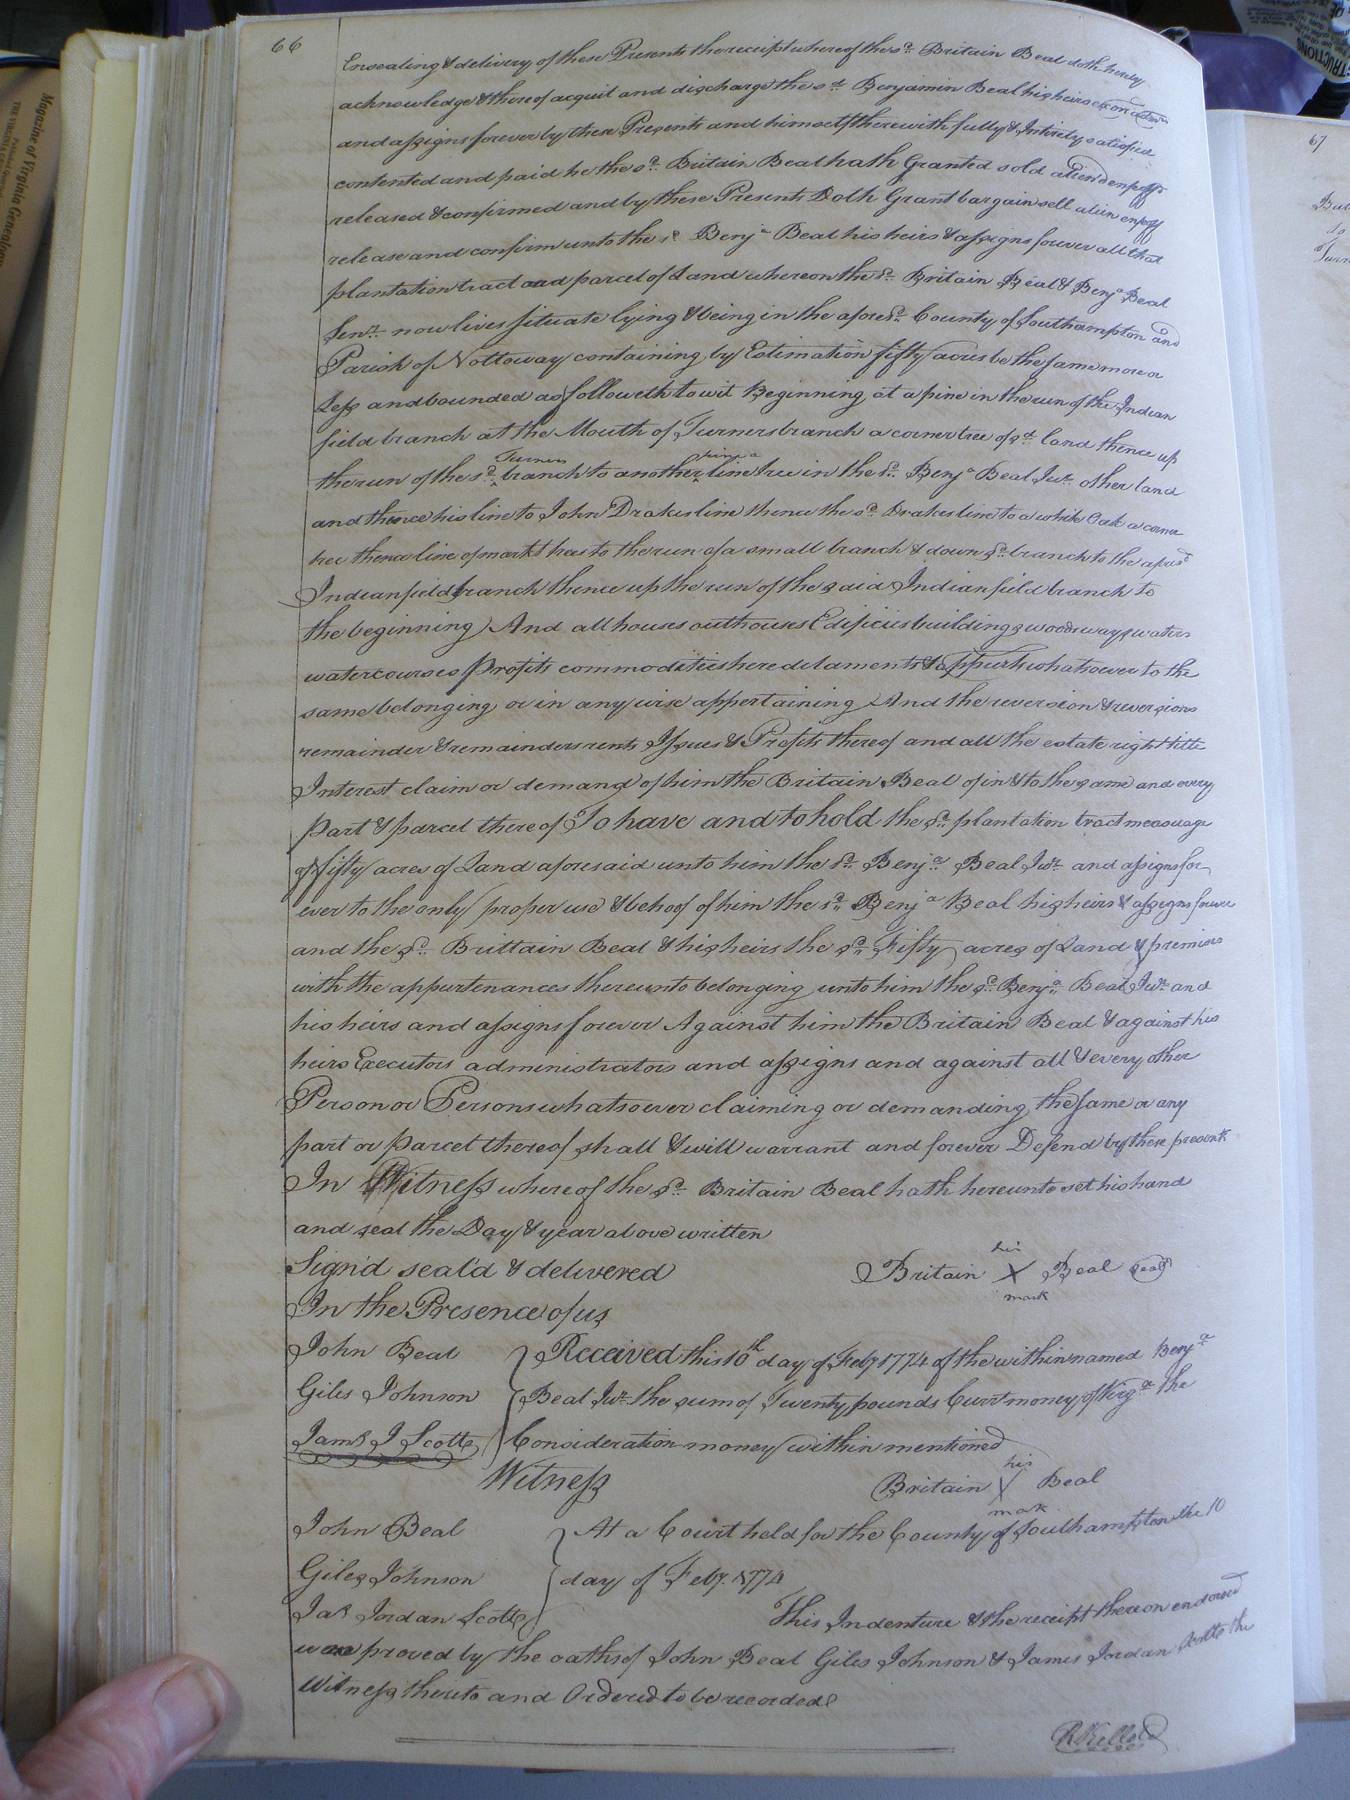 66
Ensealing & delivery of these Presents the receipt whereof the sd. Britain Beal doth hereby
acknowledge & thereof acquit and discharge the sd. Benjamin Beal his heirs
and assigns forever by these Presents and himself therewith fully & Intirely satisfied
contented and paid he the sd. Britain Beal hath Granted sold
released & confirmed and by these Presents Doth Grant bargain sell alien
release and confirm unto the sd. Benja Beal his heirs & assigns forever all that
plantation tract and parcel of Land whereon the sd. Britain Beal & Benja Beal
Senr. now lives situate lying & being in the aforesd. County of Southampton and
Parish of Nottoway containing by Estimation fifty acres be the same more or
Less and bounded as followeth to wit Beginning at a pine in the run of the Indian
field branch at the Mouth of Turners branch a corner tree of sd. land thence up
the run of the sd. Turners branch to another line tree in the sd. Benja Beal Junr. other land
and thence his line to John Drakes line thence the sd. Drakes line to a white Oak a corner
tree thence line of markt trees to the run of a small branch & down sd. branch to the aforesd
Indian field branch thence up the run of the said Indian field branch to
the beginning And all houses outhouses Edificies buildings woods ways waters
watercourses Profits commodities hereditaments & appurts whatsoever to the
same belonging or in any wise appertaining And the reversion & reversions
remainder & remainders rents Issues & Profits thereof and all the estate right title
Interest claim or demand of him the Britain Beal of in & to the same and every
Part & parcel thereof To have and to hold the sd. plantation tract messuage
of fifty acres of Land aforesaid unto him the sd. Benja. Beal Junr. and assigns for
ever to the only proper use & behoof of him the sd. Benja Beal his heirs & assigns forever
and the sd. Brittain Beal & his heirs the sd. Fifty acres of Land & premises
with the appurtenances thereunto belonging unto him the sd. Benja. Beal Junr. and
his heirs and assigns forever Against him the Britain Beal & against his
heirs Executors administrators and assigns and against all & every other
Person or Persons whatsoever claiming or demanding the same or any
part or Parcel thereof shall & will warrant and forever Defend by these presents
In Witness whereof the sd. Britain Beal hath hereunto set his hand
and seal the Day & year above written
Sign'd seal'd & delivered Britain his X mark Beal Seal
In the Presence of us
John Beal Received this 10th day of Feby 1774 of the within named Benja
Giles Johnson Beal Junr. the sum of Twenty pounds Currt money of Virga the
Jams J Scott Consideration money within mentioned
Witness Britain his X mark Beal
John Beal At a Court held for the County of Southampton the 10
Giles Johnson day of Feby. 1774
Jas Jordan Scott This Indenture & the receipt thereon endorsed
was proved by the oaths of John Beal Giles Johnson & James Jordan Scott the
Witness thereto and Ordered to be recorded
67
Magazine of Virginia Genealogy